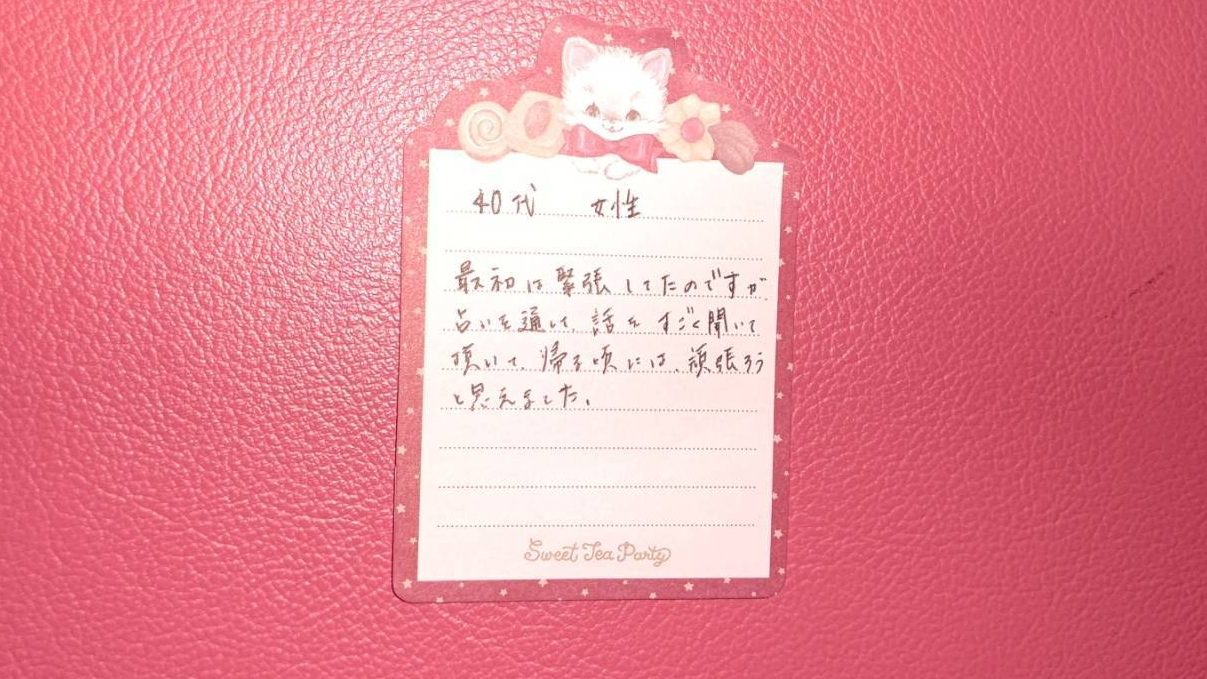 40代　女性
最初は緊張してたのですが
占いを通して、話を すごく聞いて
頂いて、帰る頃には、頑張ろう
と思えました。
Sweet Tea Party